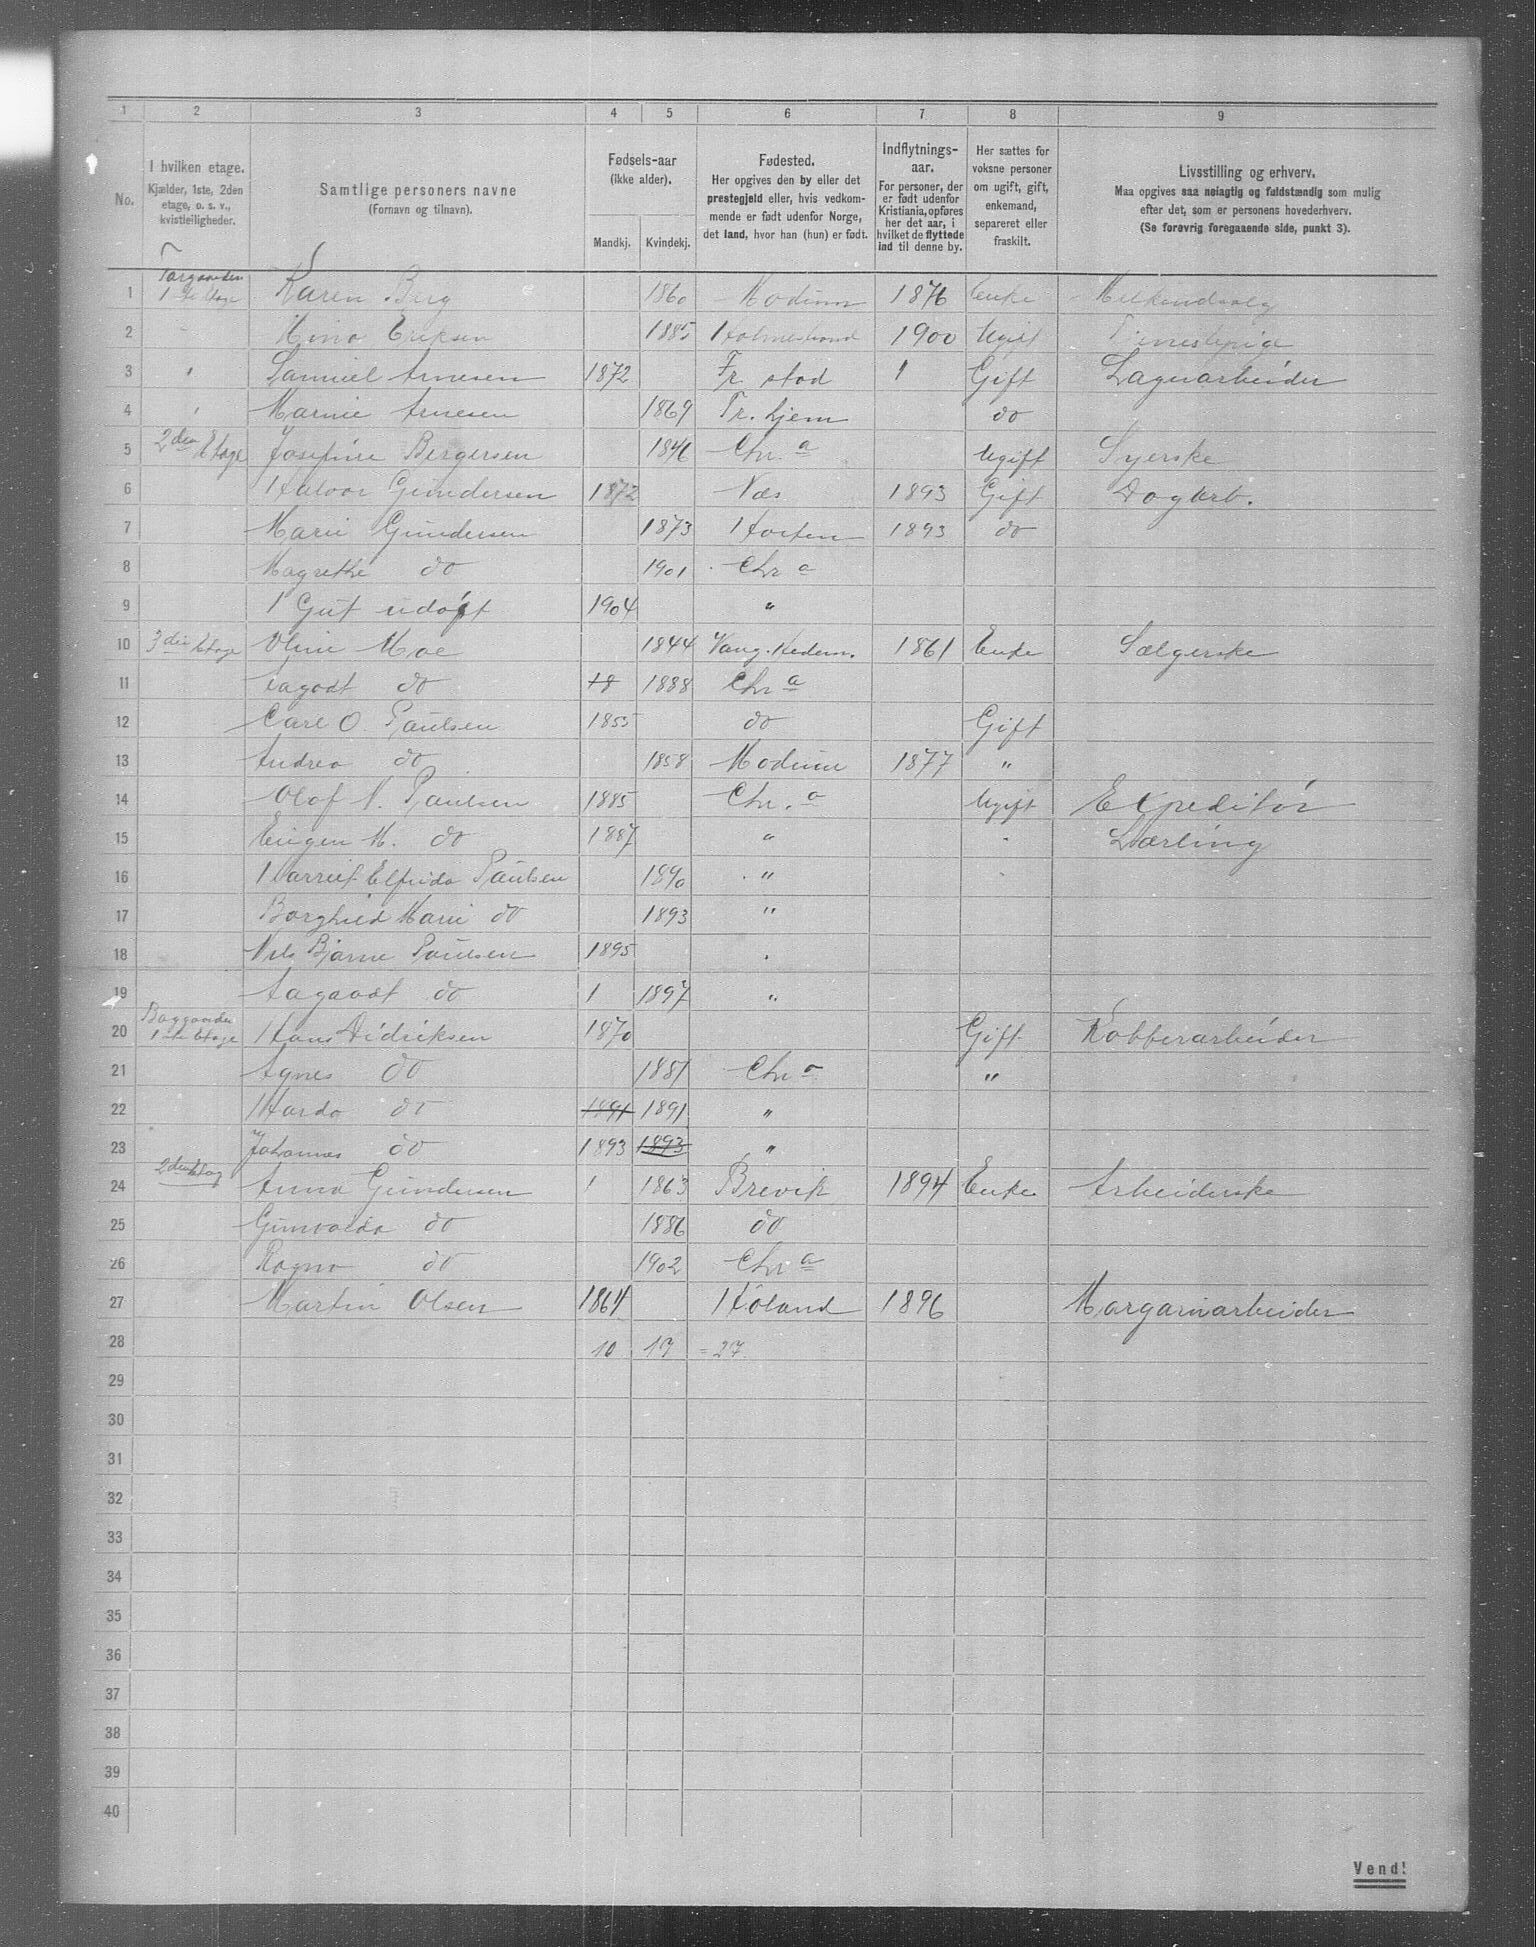 1 2 3 4 5 6 7 8 9
No.
I hvilken etage.
Kjælder, 1ste, 2den
etage, o. s. v.,
kvistleiligheder.
Samtlige personers navne
(Fornavn og tilnavn).
Fødsels-aar
(ikke alder).
Mandkj. Kvindekj.
Fødested.
Her opgives den by eller det
prestegjeld eller, hvis vedkom-
mende er født udenfor Norge,
det land, hvor han (hun) er født.
Indflytnings-
aar.
For personer, der
er født udenfor
Kristiania, opføres
her det aar, i
hvilket de flyttede
ind til denne by.
Her sættes for
voksne personer
om ugift, gift,
enkemand,
separeret eller
fraskilt.
Livsstilling og erhverv.
Maa opgives saa nøiagtig og fuldstændig som mulig
efter det, som er personens hovederhverv.
(Se forøvrig foregaaende side, punkt 3).
Forgaarden
1 1ste Etage Karen Berg 1860 Modum 1876 Enke Melkeudsalg
2 Mina Eriksen 1885 Holmestrand 1900 Ugift Tjenestepige
3 " Samuel Arnesen 1872 Fr. stad 1 Gift Lagerarbeider
4 " Marnie Arnesen 1869 Tr. hjem do
5 2den Etage Josefine Bergersen 1846 Chr.a Ugift Syerske
6 Halvor Gundersen 1872 Næs 1893 Gift Dagarb.
7 Marie Gundersen 1873 Horten 1893 do
8 Magrethe do 1901 Chra
9 1 Gut udøpt 1904 "
10 3die Etage Oline Moe 1844 Vang. Hedem. 1861 Enke Sælgerske
11 Aagodt do 18 1888 Chra
12 Carl O. Paulsen 1855 do Gift
13 Andrea do 1858 Modum 1877 "
14 Olof N. Paulsen 1885 Chr.a Ugift Expeditør
15 Eugen M. do 1887 " " Lærling
16 Harriet Elfrida Paulsen 1890 "
17 Borghild Marie do 1893 "
18 Nils Bjarne Paulsen 1895 .
19 Aagaadt do 1 1897 "
Baggaarden
20 1ste Etage Hans Didriksen 1870 Gift Kobberarbeider
21 Agnes do 1851 Chra "
22 Harda do 1891 1891 "
23 Johannes do 1893 1893 "
24 2den Etag Anna Gundersen 1 1863 Brevik 1894 Enke Arbeiderske
25 Gunvalda do 1886 do
26 Ragna do 1902 Chra
27 Martin Olsen 1864 Høland 1896 Margarinarbeider
28 10 17 = 27.
29
30
31
32
33
34
35
36
37
38
39
40
Vend!